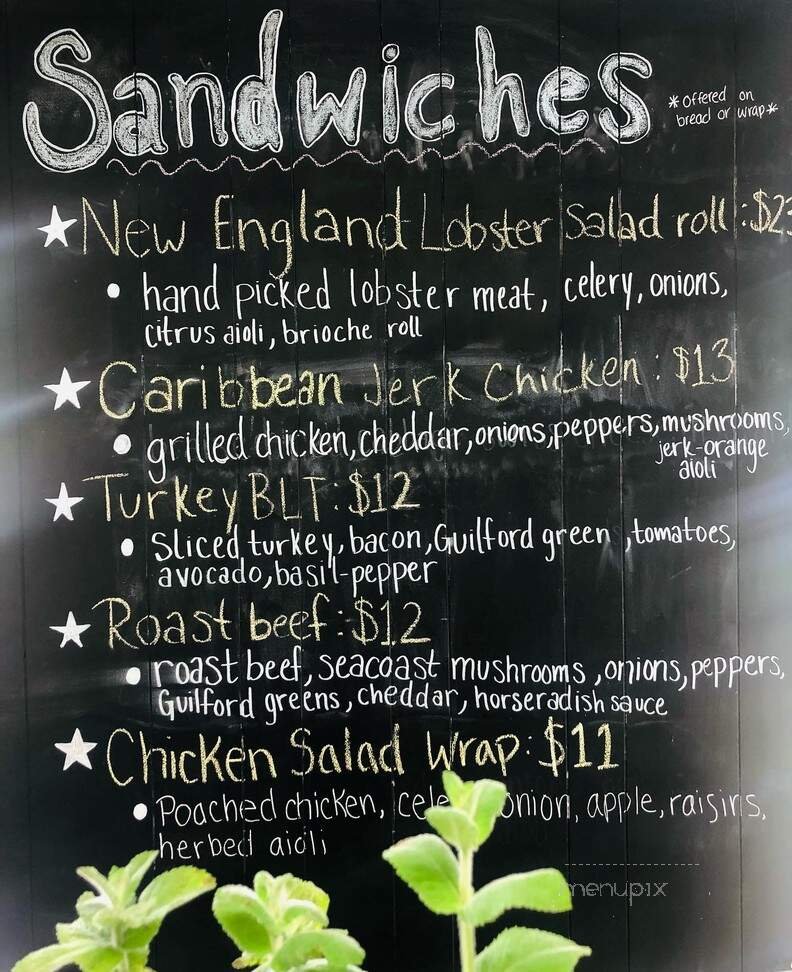 Sandwiches
*offered on
bread or wrap*
New England Lobster Salad roll: $23
hand picked lobster meat, celery, onions,
citrus aioli, brioche roll
Caribbean Jerk Chicken: $13
grilled chicken, cheddar, onions, peppers, mushrooms,
jerk-orange
aioli
Turkey BLT: $12
Sliced turkey, bacon, Guilford green, tomatoes,
avocado, basil-pepper
Roast beef: $12
roast beef, seacoast mushrooms, onions, peppers,
Guilford greens, cheddar, horseradish sauce
Chicken Salad Wrap: $11
Poached chicken, onion, apple, raisins,
herbed aioli
menupix